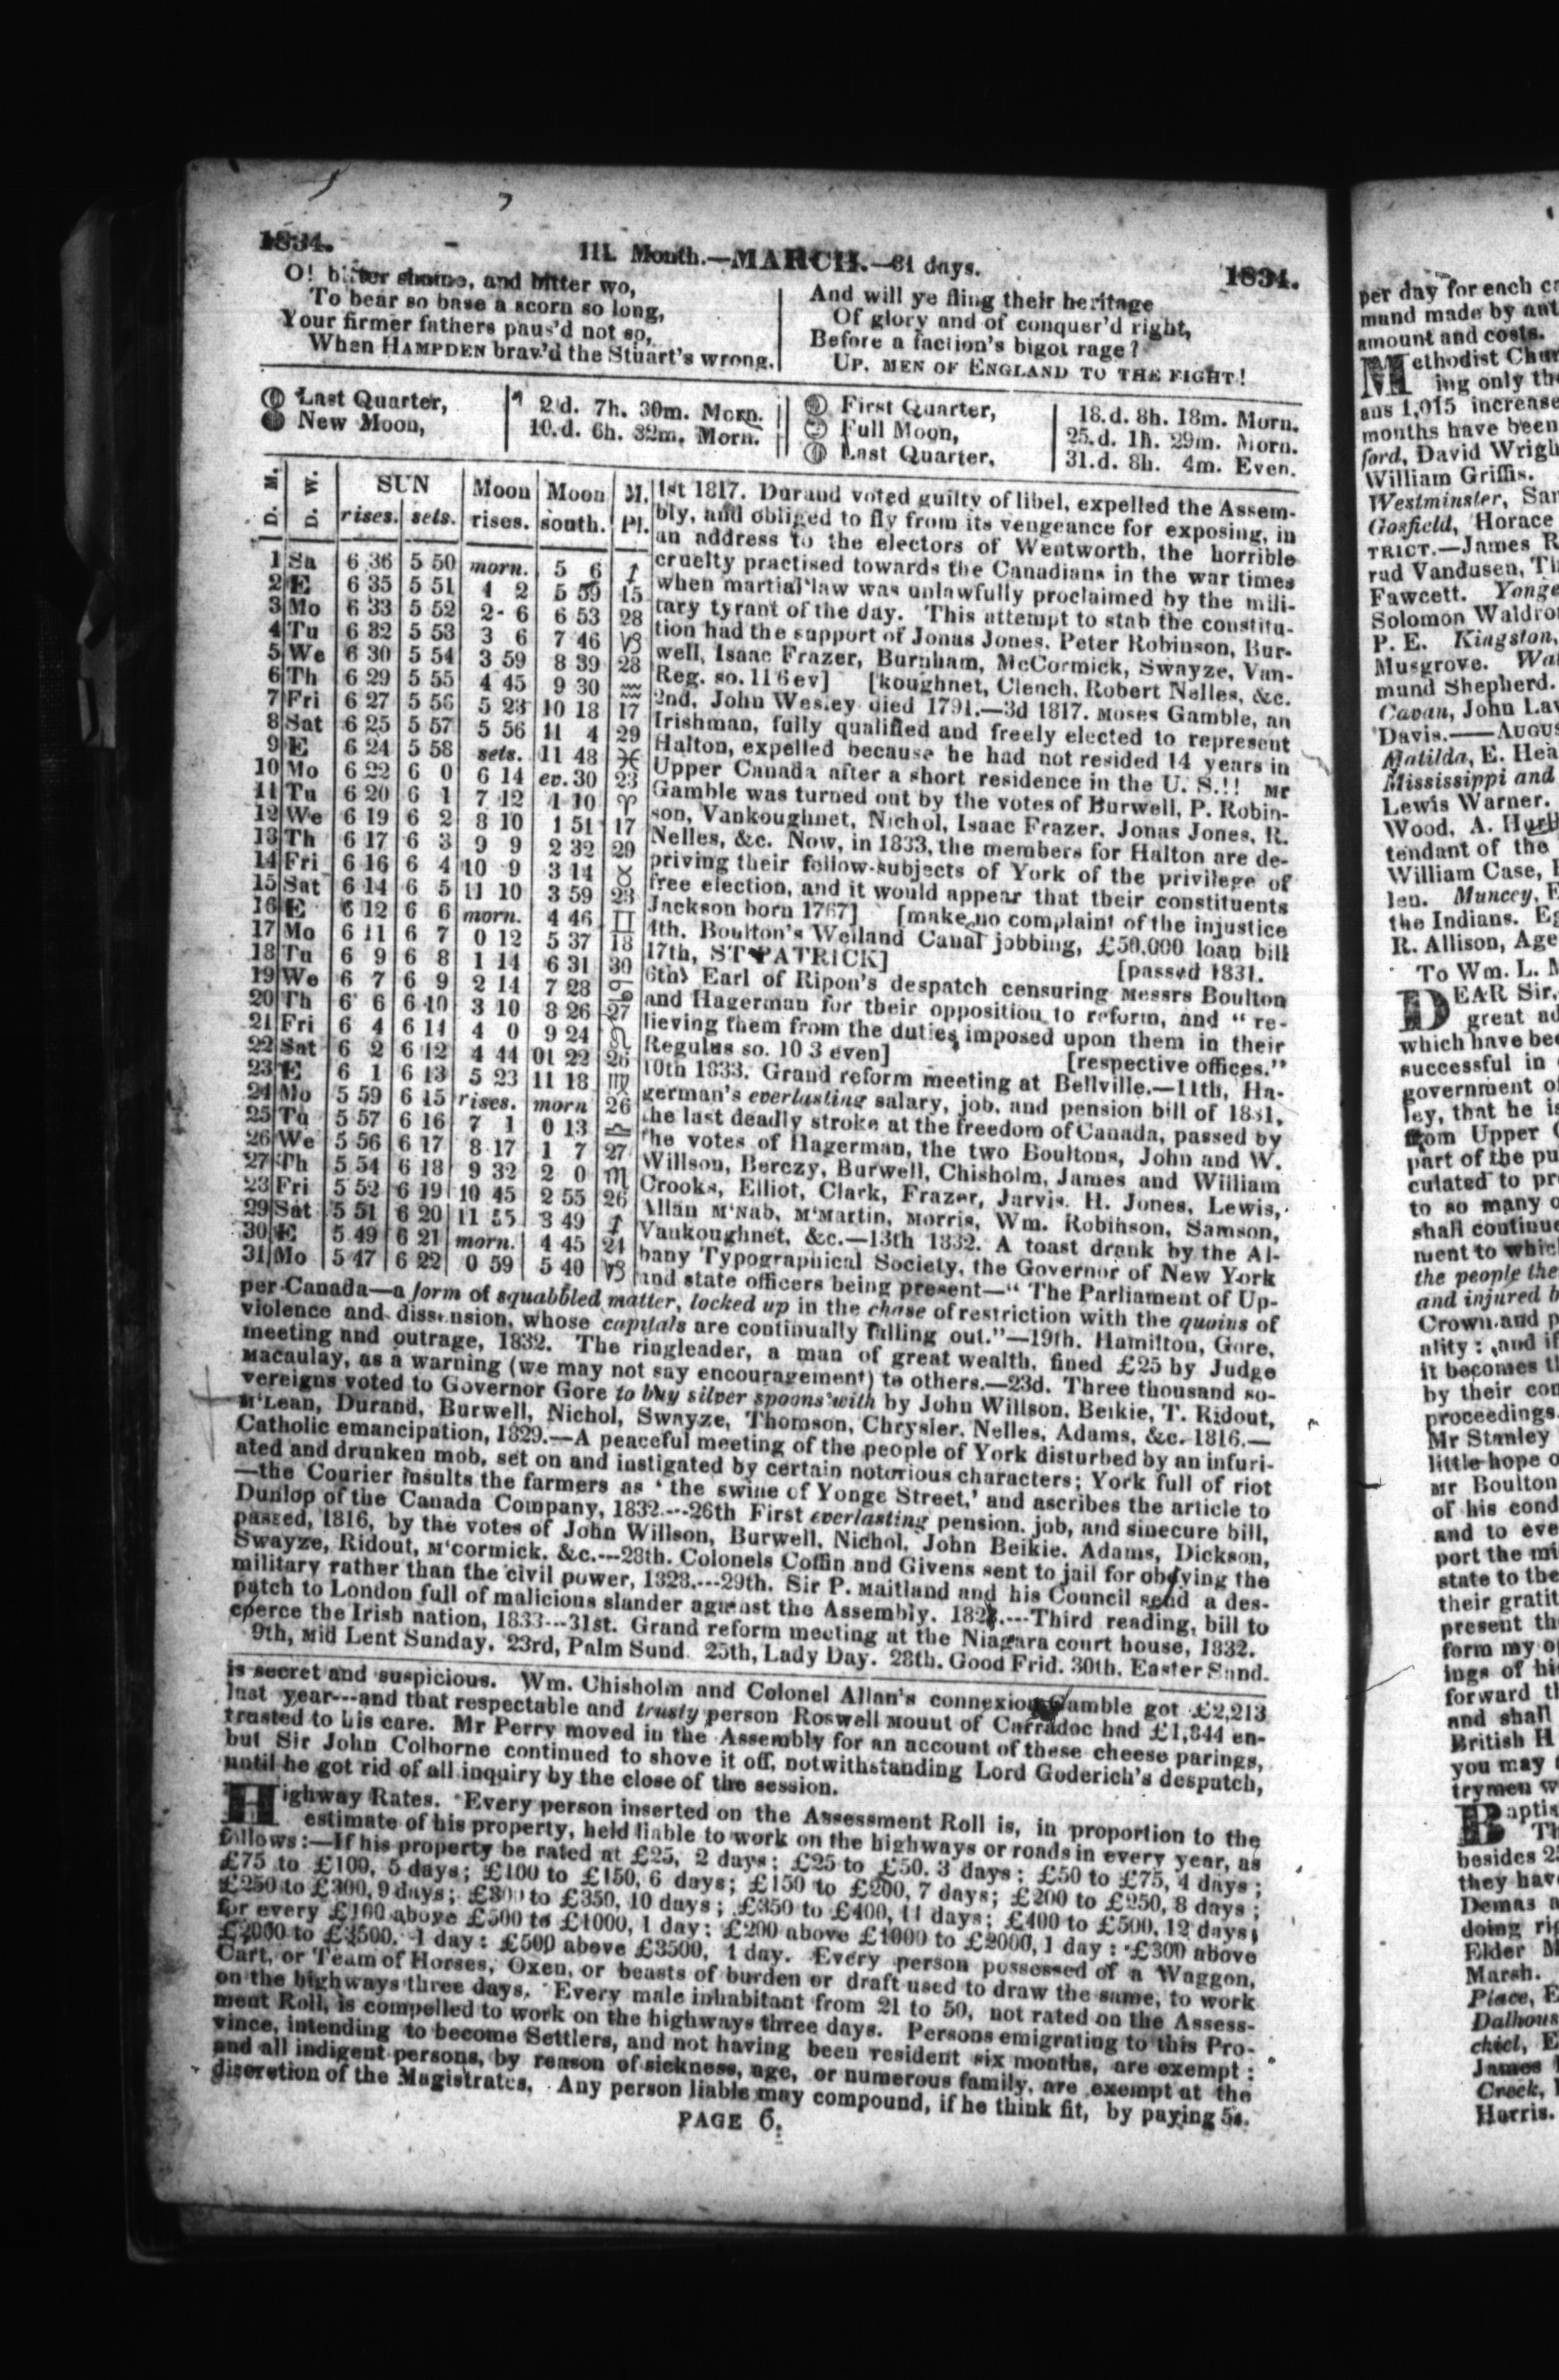 1834. III. Month.—MARCH.—31 days. 1834.
O! bitter shame, and bitter wo,
To bear so base a scorn so long,
Your firmer fathers paus'd not so,
When HAMPDEN brav'd the Stuart's wrong.
And will ye fling their heritage
Of glory and of conquer'd right,
Before a faction's bigot rage?
UP, MEN OF ENGLAND TO THE FIGHT!
Last Quarter, 2 d. 7h. 30m. Morn.
New Moon, 10.d. 6h. 32m. Morn.
First Quarter, 18.d. 8h. 18m. Morn.
Full Moon, 25.d. 1h. 29m. Morn.
Last Quarter, 31.d. 8h. 4m. Even.
D. M. D. W. SUN Moon Moon M.
rises. sets. rises. south. Pl.
1 Sa 6 36 5 50 morn. 5 6 ♐
2 E 6 35 5 51 1 2 5 59 15
3 Mo 6 33 5 52 2 6 6 53 28
4 Tu 6 32 5 53 3 6 7 46 ♑
5 We 6 30 5 54 3 59 8 39 28
6 Th 6 29 5 55 4 45 9 30 ♒
7 Fri 6 27 5 56 5 23 10 18 17
8 Sat 6 25 5 57 5 56 11 4 29
9 E 6 24 5 58 sets. 11 48 ♓
10 Mo 6 22 6 0 6 14 ev. 30 23
11 Tu 6 20 6 1 7 12 1 10 ♈
12 We 6 19 6 2 8 10 1 51 17
13 Th 6 17 6 3 9 9 2 32 29
14 Fri 6 16 6 4 10 9 3 14 ♉
15 Sat 6 14 6 5 11 10 3 59 23
16 E 6 12 6 6 morn. 4 46 ♊
17 Mo 6 11 6 7 0 12 5 37 18
18 Tu 6 9 6 8 1 14 6 31 30
19 We 6 7 6 9 2 14 7 28 ♋
20 Th 6 6 6 10 3 10 8 26 27
21 Fri 6 4 6 11 4 0 9 24 ♌
22 Sat 6 2 6 12 4 44 01 22 26
23 E 6 1 6 13 5 23 11 18 ♍
24 Mo 5 59 6 15 rises. morn 26
25 Tu 5 57 6 16 7 1 0 13 ♎
26 We 5 56 6 17 8 17 1 7 27
27 Th 5 54 6 18 9 32 2 0 ♏
28 Fri 5 52 6 19 10 45 2 55 26
29 Sat 5 51 6 20 11 55 3 49 ♐
30 E 5 49 6 21 morn. 4 45 24
31 Mo 5 47 6 22 0 59 5 40 ♑
1st 1817. Durand voted guilty of libel, expelled the Assem-
bly, and obliged to fly from its vengeance for exposing, in
an address to the electors of Wentworth, the horrible
cruelty practised towards the Canadians in the war times
when martial law was unlawfully proclaimed by the mili-
tary tyrant of the day. This attempt to stab the constitu-
tion had the support of Jonas Jones, Peter Robinson, Bur-
well, Isaac Frazer, Burnham, McCormick, Swayze, Van-
Reg. so. 11 6 ev] [koughnet, Clench, Robert Nelles, &c.
2nd, John Wesley died 1791.—3d 1817. Moses Gamble, an
Irishman, fully qualified and freely elected to represent
Halton, expelled because he had not resided 14 years in
Upper Canada after a short residence in the U. S.!! Mr
Gamble was turned out by the votes of Burwell, P. Robin-
son, Vankoughnet, Nichol, Isaac Frazer, Jonas Jones, R.
Nelles, &c. Now, in 1833, the members for Halton are de-
priving their fellow-subjects of York of the privilege of
free election, and it would appear that their constituents
Jackson born 1767] [make no complaint of the injustice
4th. Boulton's Welland Canal jobbing, £50,000 loan bill
17th, ST PATRICK] [passed 1831.
6th} Earl of Ripon's despatch censuring Messrs Boulton
and Hagerman for their opposition to reform, and "re-
lieving them from the duties imposed upon them in their
Regulus so. 10 3 even] [respective offices."
10th 1833. Grand reform meeting at Bellville.—11th, Ha-
german's everlasting salary, job, and pension bill of 1831,
the last deadly stroke at the freedom of Canada, passed by
the votes of Hagerman, the two Boultons, John and W.
Willson, Berczy, Burwell, Chisholm, James and William
Crooks, Elliot, Clark, Frazer, Jarvis, H. Jones, Lewis,
Allan M'Nab, M'Martin, Morris, Wm. Robinson, Samson,
Vankoughnet, &c.—13th 1832. A toast drank by the Al-
bany Typographical Society, the Governor of New York
and state officers being present—"The Parliament of Up-
per Canada—a form of squabbled matter, locked up in the chase of restriction with the quoins of
violence and dissension, whose capitals are continually falling out."—19th. Hamilton, Gore,
meeting and outrage, 1832. The ringleader, a man of great wealth, fined £25 by Judge
Macaulay, as a warning (we may not say encouragement) to others.—23d. Three thousand so-
vereigns voted to Governor Gore to buy silver spoons with by John Willson, Beikie, T. Ridout,
M'Lean, Durand, Burwell, Nichol, Swayze, Thomson, Chrysler, Nelles, Adams, &c. 1816.—
Catholic emancipation, 1829.—A peaceful meeting of the people of York disturbed by an infuri-
ated and drunken mob, set on and instigated by certain notorious characters; York full of riot
—the Courier insults the farmers as 'the swine of Yonge Street,' and ascribes the article to
Dunlop of the Canada Company, 1832.---26th First everlasting pension, job, and sinecure bill,
passed, 1816, by the votes of John Willson, Burwell, Nichol, John Beikie, Adams, Dickson,
Swayze, Ridout, M'cormick, &c.---28th. Colonels Coffin and Givens sent to jail for obeying the
military rather than the civil power, 1828.---29th. Sir P. Maitland and his Council send a des-
patch to London full of malicious slander against the Assembly, .---Third reading, bill to
coerce the Irish nation, 1833---31st. Grand reform meeting at the Niagara court house, 1832.
9th, Mid Lent Sunday. 23rd, Palm Sund. 25th, Lady Day. 28th. Good Frid. 30th, Easter Sund.
is secret and suspicious. Wm. Chisholm and Colonel Allan's connexion Gamble got £2,213
last year---and that respectable and trusty person Roswell Mount of Carradoc had £1,844 en-
trusted to his care. Mr Perry moved in the Assembly for an account of these cheese parings,
but Sir John Colborne continued to shove it off, notwithstanding Lord Goderich's despatch,
until he got rid of all inquiry by the close of the session.
Highway Rates. Every person inserted on the Assessment Roll is, in proportion to the
estimate of his property, held liable to work on the highways or roads in every year, as
follows:—If his property be rated at £25, 2 days; £25 to £50, 3 days; £50 to £75, 4 days;
£75 to £100, 5 days; £100 to £150, 6 days; £150 to £200, 7 days; £200 to £250, 8 days;
£250 to £300, 9 days; £300 to £350, 10 days; £350 to £400, 11 days; £400 to £500, 12 days;
for every £100 above £500 to £1000, 1 day: £200 above £1000 to £2000, 1 day: £300 above
£2000 to £3500, 1 day: £500 above £3500, 1 day. Every person possessed of a Waggon,
Cart, or Team of Horses, Oxen, or beasts of burden or draft used to draw the same, to work
on the highways three days. Every male inhabitant from 21 to 50, not rated on the Assess-
ment Roll, is compelled to work on the highways three days. Persons emigrating to this Pro-
vince, intending to become Settlers, and not having been resident six months, are exempt:
and all indigent persons, by reason of sickness, age, or numerous family, are exempt at the
discretion of the Magistrates. Any person liable may compound, if he think fit, by paying 5s.
PAGE 6.
per day for each
mand made by
amount and costs.
Methodist
ing only
ans 1,015 increase
months have been
ford, David
William Griffis.
Westminster,
Gosfield, Horace
TRICT.—James
rad Vandusen,
Fawcett. Yonge
Solomon
P. E. Kingston,
Musgrove.
mund Shepherd.
Cavan, John
Davis.——
Matilda, E.
Mississippi and
Lewis Warner.
Wood, A.
tendant of the
William Case,
len. Muncey,
the Indians.
R. Allison,
To Wm. L.
DEAR Sir,
great
which have
successful in
government
ley, that he
from Upper
part of the
culated to
to so many
shall
ment to which
the people the
and injured
Crown and
ality: and if
it becomes
by their
proceedings.
Mr Stanley
little hope
Mr Boulton
of his
and to
port the
state to the
their
present
form my
ings of
forward
and shall
British
you may
trymen
besides
they
Demas
doing
Elder
Marsh.
Place,
James
Creek,
Harris.